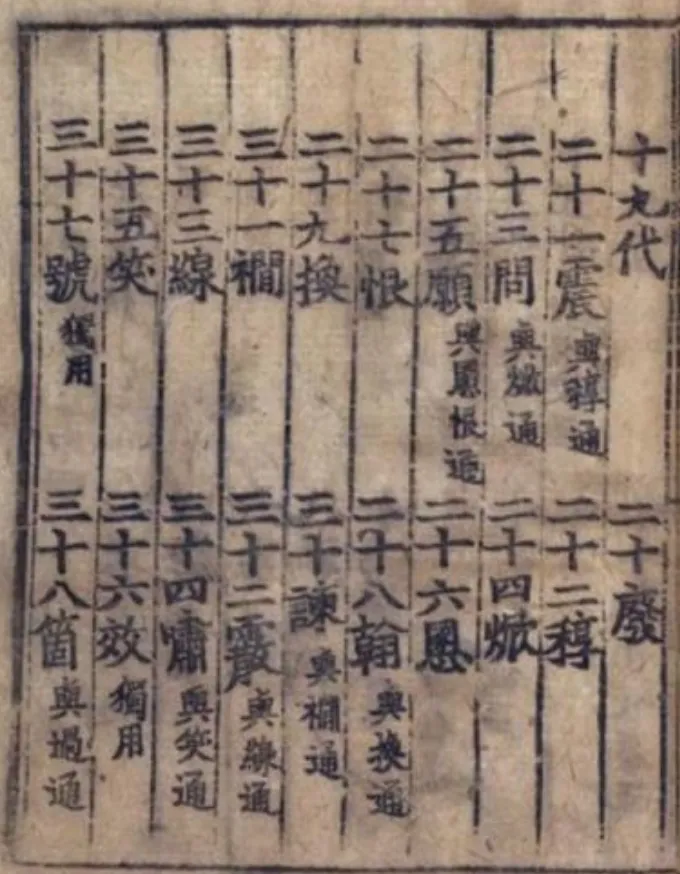 十九代 二十廢
二十一震 與稕通 二十二稕
二十三問 與焮通 二十四焮
二十五願 與慁恨通 二十六慁
二十七恨 二十八翰 與換通
二十九換 三十諫 與襉通
三十一襉 三十二霰 與線通
三十三線 三十四嘯 與笑通
三十五笑 三十六效 獨用
三十七號 獨用 三十八箇 與過通